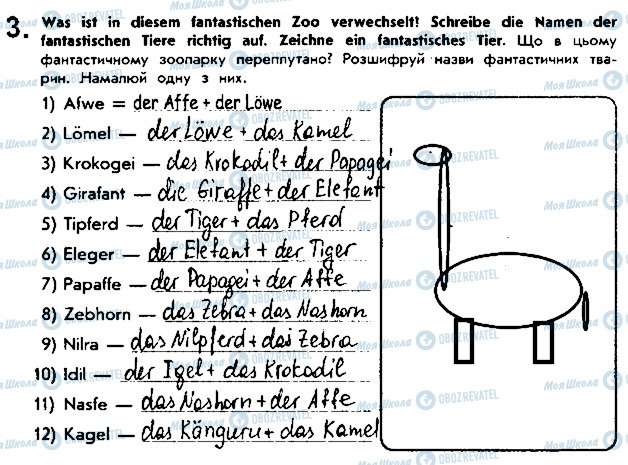 3. Was ist in diesem fantastischen Zoo verwechselt! Schreibe die Namen der
fantastischen Tiere richtig auf. Zeichne ein fantastisches Tier. Що в цьому
фантастичному зоопарку переплутано? Розшифруй назви фантастичних тва-
рин. Намалюй одну з них.
1) Afwe = der Affe + der Löwe
2) Lömel — der Löwe + das Kamel
3) Krokogei — das Krokodil + der Papagei
4) Girafant — die Giraffe + der Elefant
5) Tipferd — der Tiger + das Pferd
6) Eleger — der Elefant + der Tiger
7) Papaffe — der Papagei + der Affe
8) Zebhorn — das Zebra + das Nashorn
9) Nilra — das Nilpferd + das Zebra
10) Idil — der Igel + das Krokodil
11) Nasfe — das Nashorn + der Affe
12) Kagel — das Känguru + das Kamel